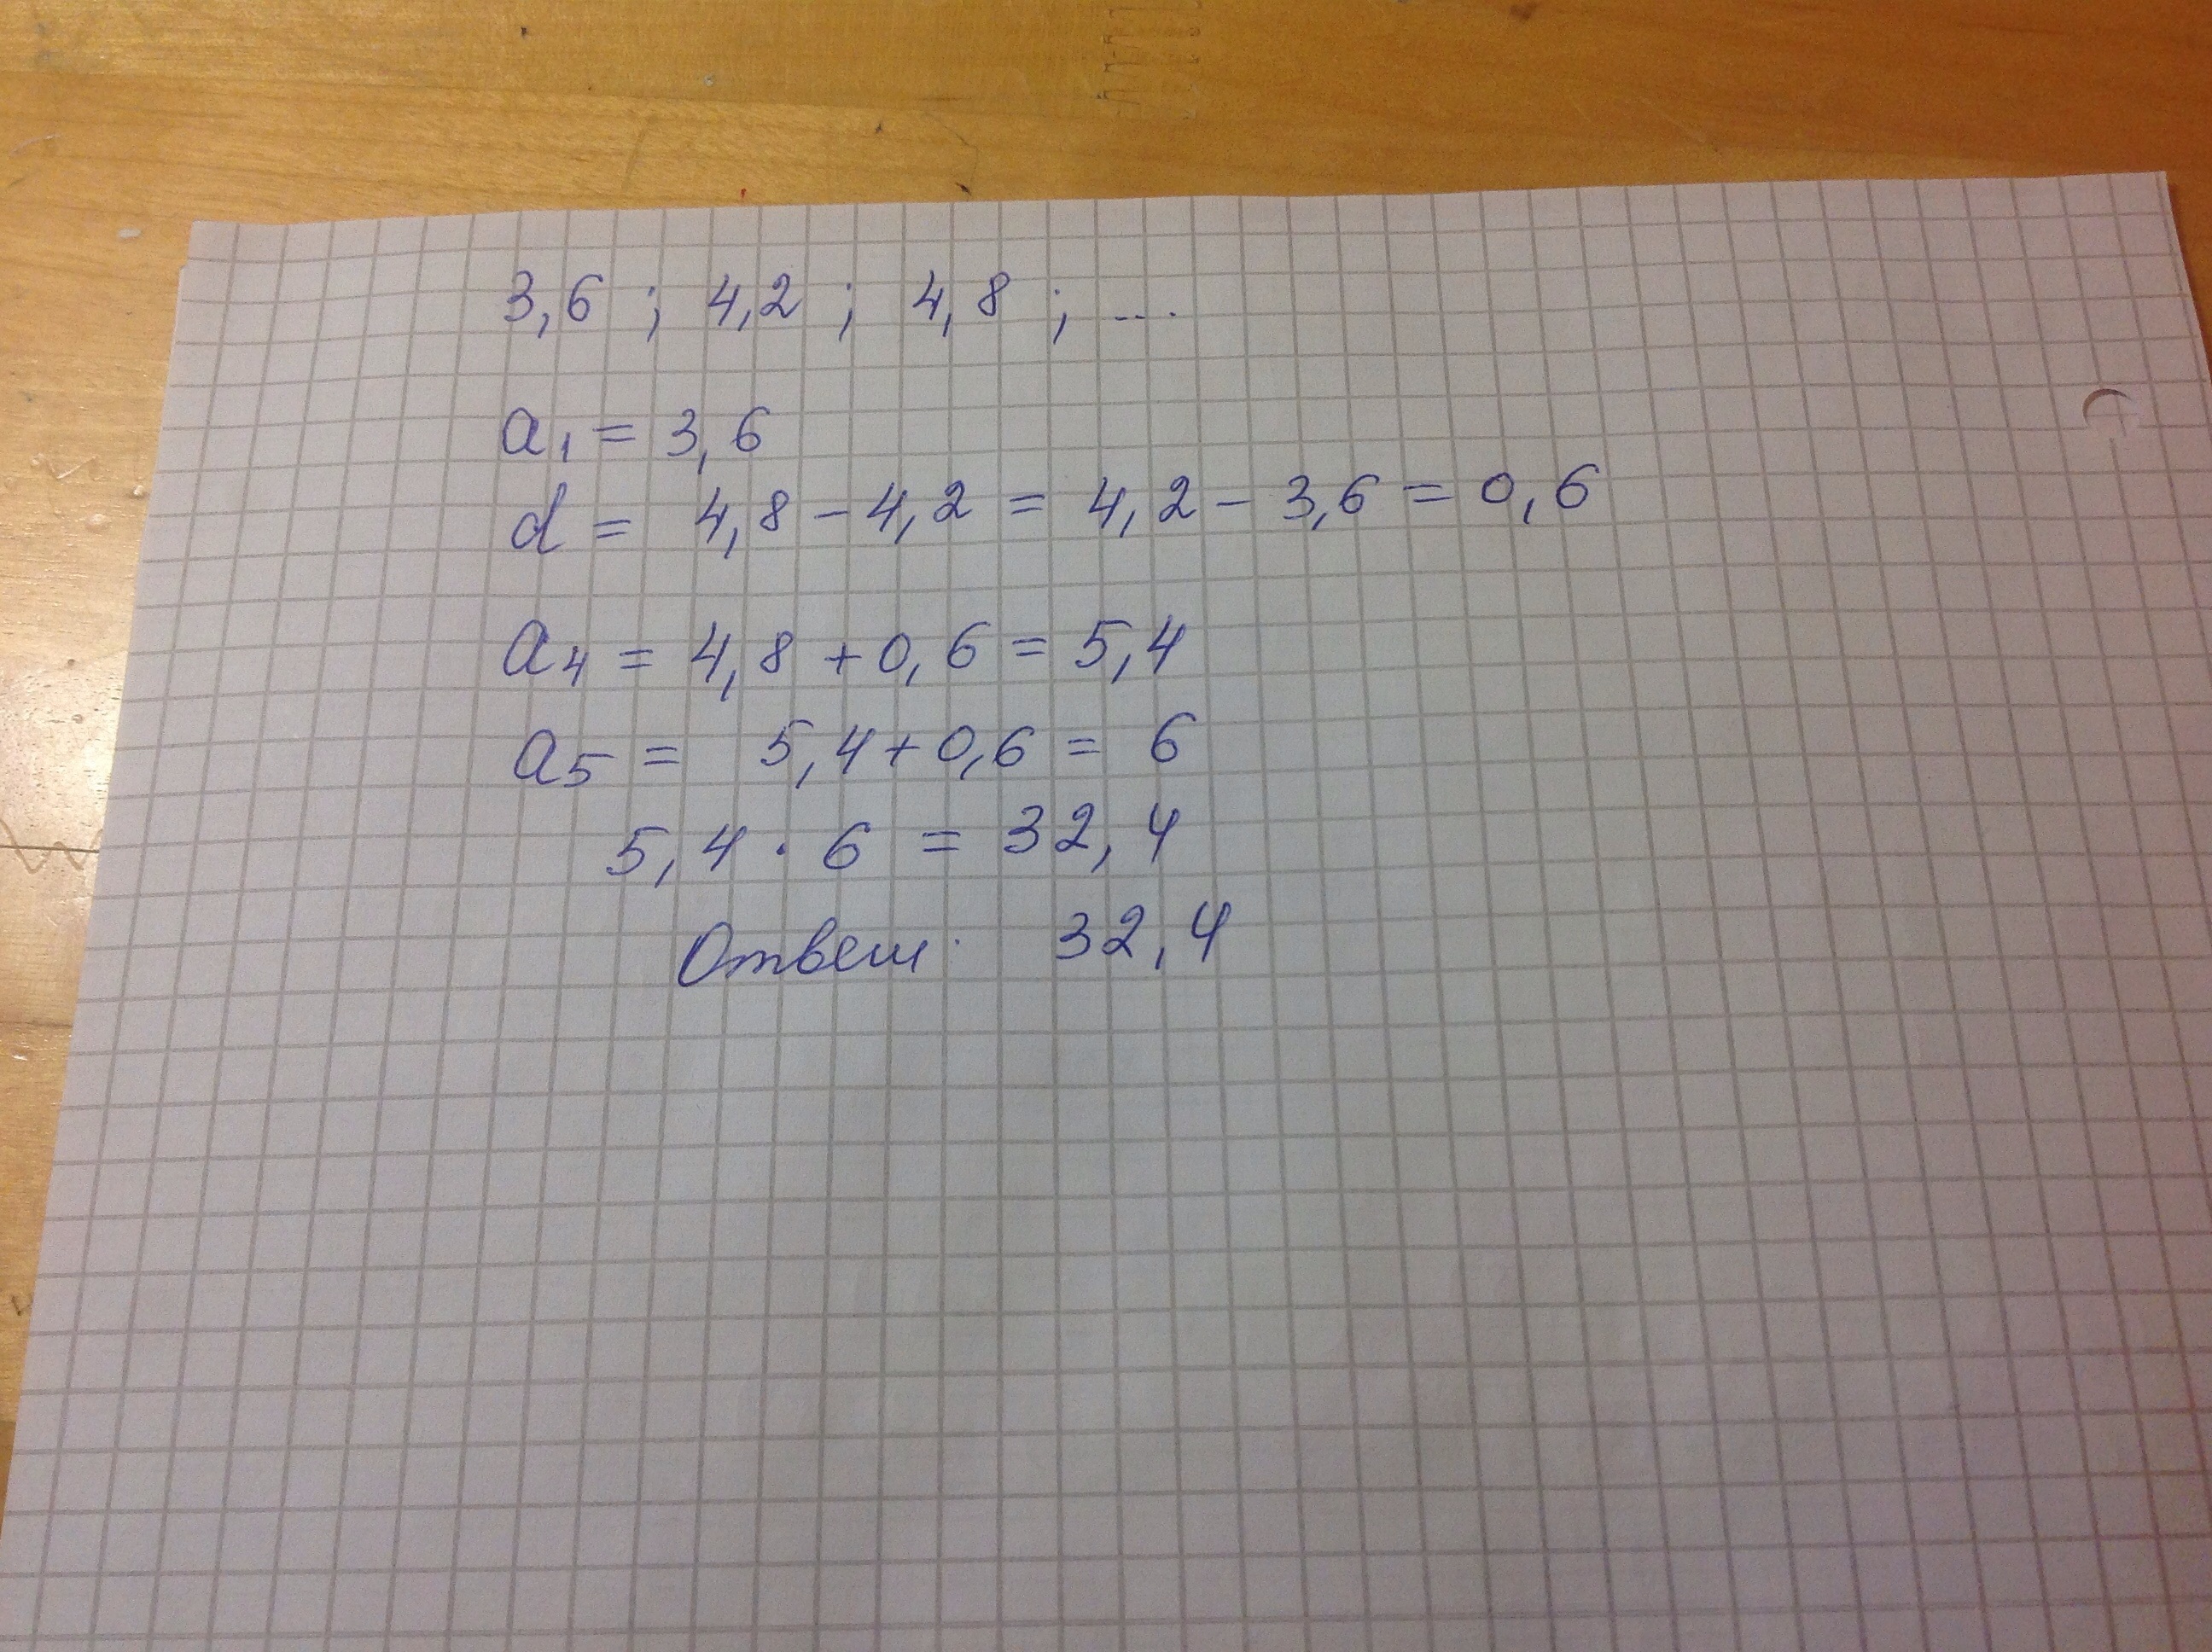 3,6 ; 4,2 ; 4,8 ; ...
a₁ = 3,6
d = 4,8 - 4,2 = 4,2 - 3,6 = 0,6
a₄ = 4,8 + 0,6 = 5,4
a₅ = 5,4 + 0,6 = 6
5,4 · 6 = 32,4
Ответ: 32,4